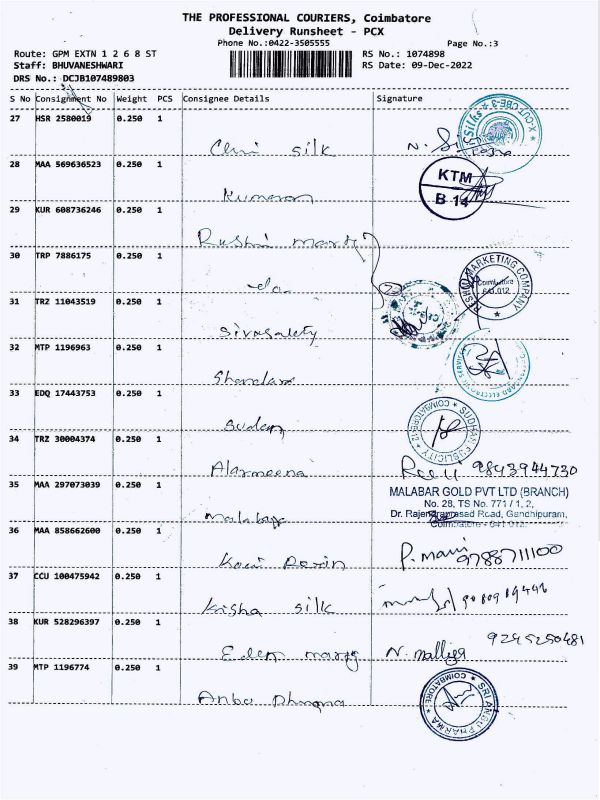 THE PROFESSIONAL COURIERS, Coimbatore
Delivery Runsheet - PCX
Phone No.:0422-3505555 Page No.:3
Route: GPM EXTN 1 2 6 8 ST RS No.: 1074898
Staff: BHUVANESHWARI RS Date: 09-Dec-2022
DRS No.: DCJB107489803
S No Consignment No Weight PCS Consignee Details Signature
27 HSR 2580019 0.250 1
silk
X-CUT CBE-3
Silks
28 MAA 569636523 0.250 1
KTM
B 14
Kumaran
29 KUR 608736246 0.250 1
30 TRP 7886175 0.250 1
MARKETING COMPANY
Coimbatore
641 012
do
31 TRZ 11043519 0.250 1
32 MTP 1196963 0.250 1
33 EDQ 17443753 0.250 1
SUDHAN PUBLICITY
COIMBATORE-12
34 TRZ 30004374 0.250 1
9843944730
35 MAA 297073039 0.250 1
MALABAR GOLD PVT LTD (BRANCH)
No. 28, TS No. 771 / 1, 2,
Dr. Rajendraprasad Road, Gandhipuram,
Coimbatore - 641 012.
36 MAA 858662600 0.250 1
P. mani
9788711100
37 CCU 100475942 0.250 1
Kisha silk
38 KUR 528296397 0.250 1
9245250481
N. malliga
39 MTP 1196774 0.250 1
SRI ANBU PHARMA
COIMBATORE